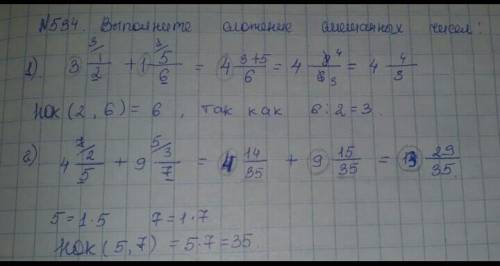 №594. Выполните сложение смешанных чисел:
1) 3 1/2 + 1 5/6 = 4 (3+5)/6 = 4 8/6 = 4 4/3
НОК (2, 6) = 6, так как 6:2=3.
2) 4 2/5 + 9 3/7 = 4 14/35 + 9 15/35 = 13 29/35.
5=1·5 7=1·7
НОК (5,7) = 5·7=35.